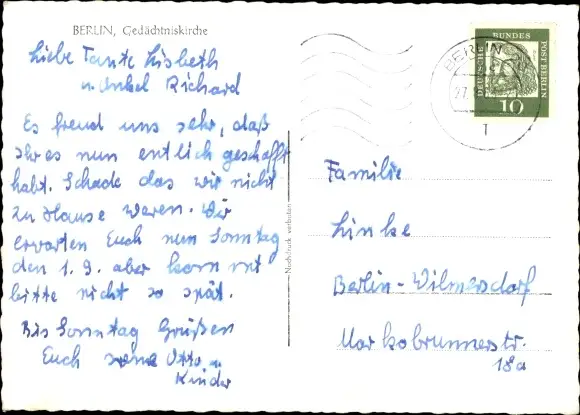 BERLIN, Gedächtniskirche
Liebe Tante Lisbeth
u. Onkel Richard
Es freud uns sehr, daß
Ihr es nun entlich geschafft
habt. Schade das wir nicht
zu Hause waren. Wir
erwarten Euch nun Sonntag
den 1. 9. aber kommt
bitte nicht so spät.
Bis Sonntag Grüßen
Euch Otto u.
Kinder
Nachdruck verboten
BERLIN
27.
1
DEUTSCHE BUNDES POST BERLIN
10
Familie
Linke
Berlin-Wilmersdorf
Markobrunnerstr.
18a